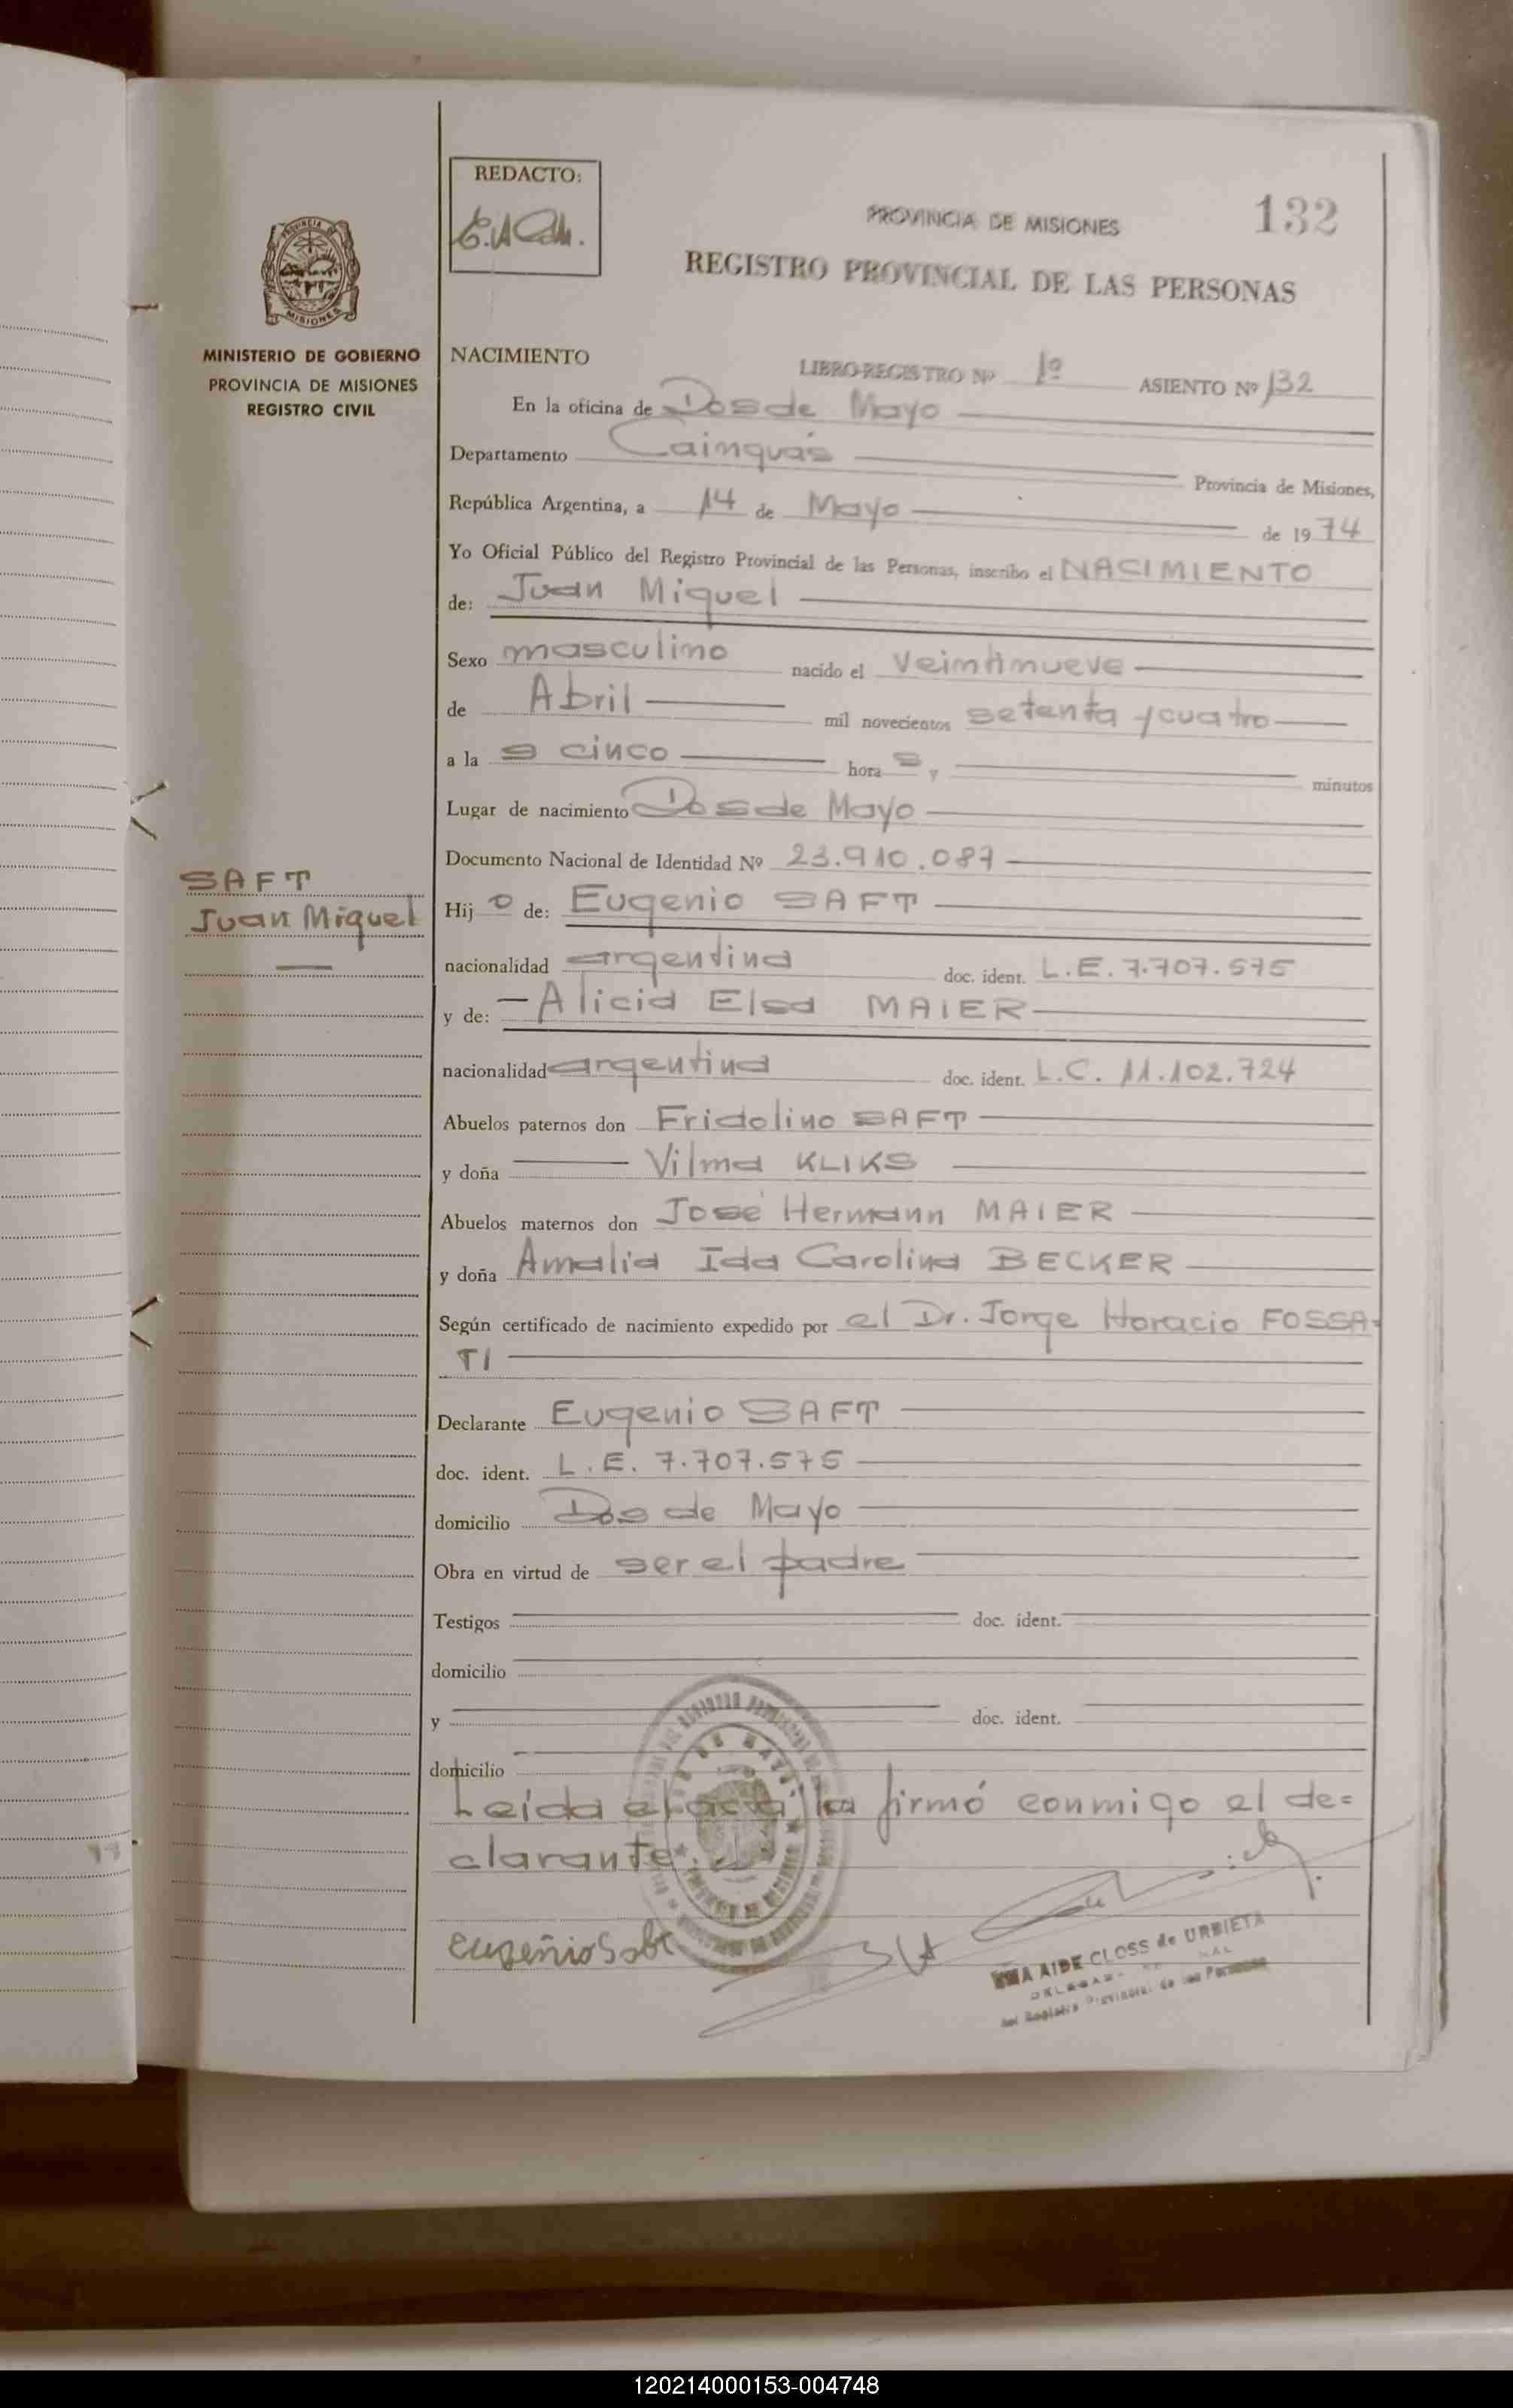 REDACTO:
132
PROVINCIA DE MISIONES
REGISTRO PROVINCIAL DE LAS PERSONAS
PROVINCIA DE
MISIONES
MINISTERIO DE GOBIERNO
PROVINCIA DE MISIONES
REGISTRO CIVIL
NACIMIENTO
LIBRO-REGISTRO Nº 1º ASIENTO Nº 132
En la oficina de Dos de Mayo
Departamento Cainguás Provincia de Misiones,
República Argentina, a 14 de Mayo de 1974
Yo Oficial Público del Registro Provincial de las Personas, inscribo el NACIMIENTO
de: Juan Miguel
Sexo masculino nacido el veintinueve
de Abril mil novecientos setenta y cuatro
a la s cinco hora s y minutos
Lugar de nacimiento Dos de Mayo
Documento Nacional de Identidad Nº 23.910.087
SAFT
Juan Miguel
Hij o de: Eugenio SAFT
nacionalidad argentina doc. ident. L.E. 7.707.575
y de: Alicia Elsa MAIER
nacionalidad argentina doc. ident. L.C. 11.102.724
Abuelos paternos don Fridolino SAFT
y doña Vilma KLIKS
Abuelos maternos don José Hermann MAIER
y doña Amalia Ida Carolina BECKER
Según certificado de nacimiento expedido por el Dr. Jorge Horacio FOSSA-
TI
Declarante Eugenio SAFT
doc. ident. L.E. 7.707.575
domicilio Dos de Mayo
Obra en virtud de ser el padre
Testigos doc. ident.
domicilio
y doc. ident.
domicilio
Leída el acta, la firmó conmigo el de=
clarante.
Eugenio Saft
AIDE CLOSS de URBIETA
del Registro Provincial de las Personas
120214000153-004748